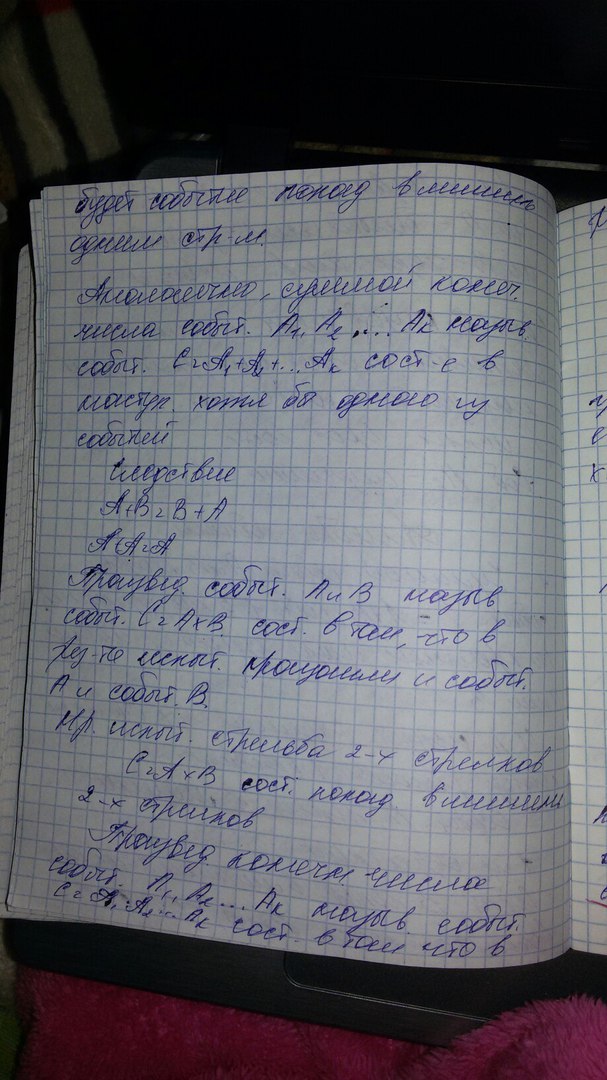 будет событие попад в мишень
одним стр-м.
Аналогично, суммой конеч.
числа событ. A₁, A₂ ... Aк назыв.
событ. C=A₁+A₂+...Aк сост-е в
наступ. хотя бы одного из
событий
Следствие
A+B=B+A
A+A=A
Произвед. событ. A и B назыв
событ. C=A×B. сост. в том, что в
рез-те испыт. произошли и событ.
A и событ. B.
Нр. испыт. стрельба 2-х стрелков
C=A×B сост. попад. в мишени
2-х стрелков
Произвед конечн. числа
событ. A₁, A₂... Aк назыв. событ.
C=A₁·A₂...Aк сост. в том что в